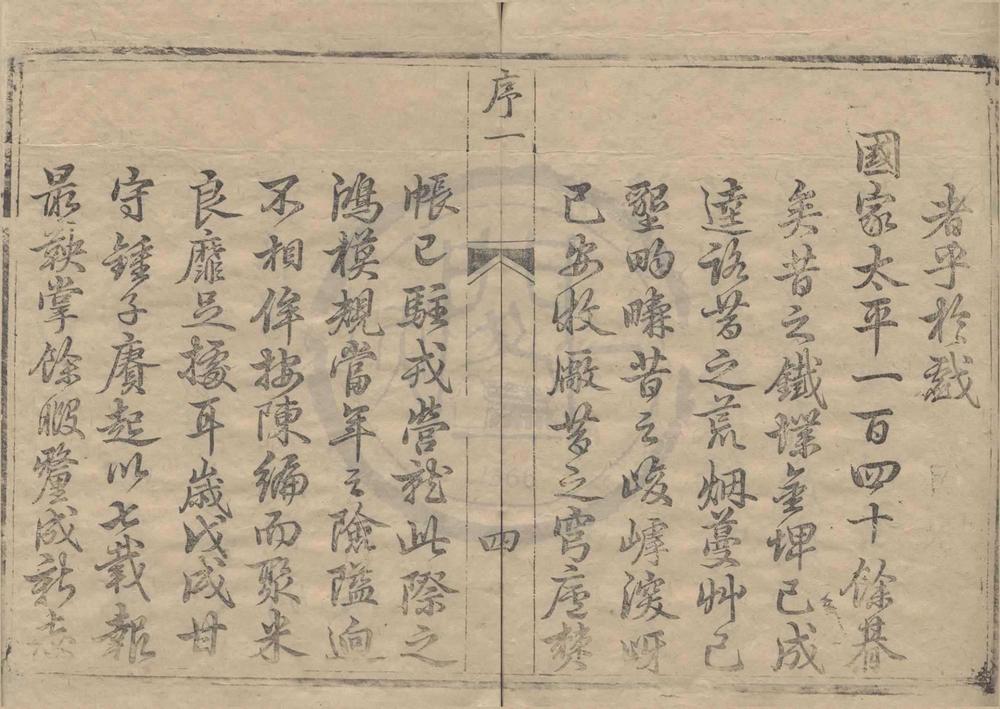 者乎於戲
國家太平一百四十餘朞
矣昔之鐵壘金埤已成
逵路昔之荒烟蔓艸已
墾畇疇昔之峻嶂深呀
已安牧厰昔之穹廬
序一
四
帳已駐戎營就此際之
鴻模規當年之險隘逈
不相侔按陳編而聚米
良靡足據耳歲戊戌甘
守鍾子賡起以七載報
最鞅掌餘暇釐成新志